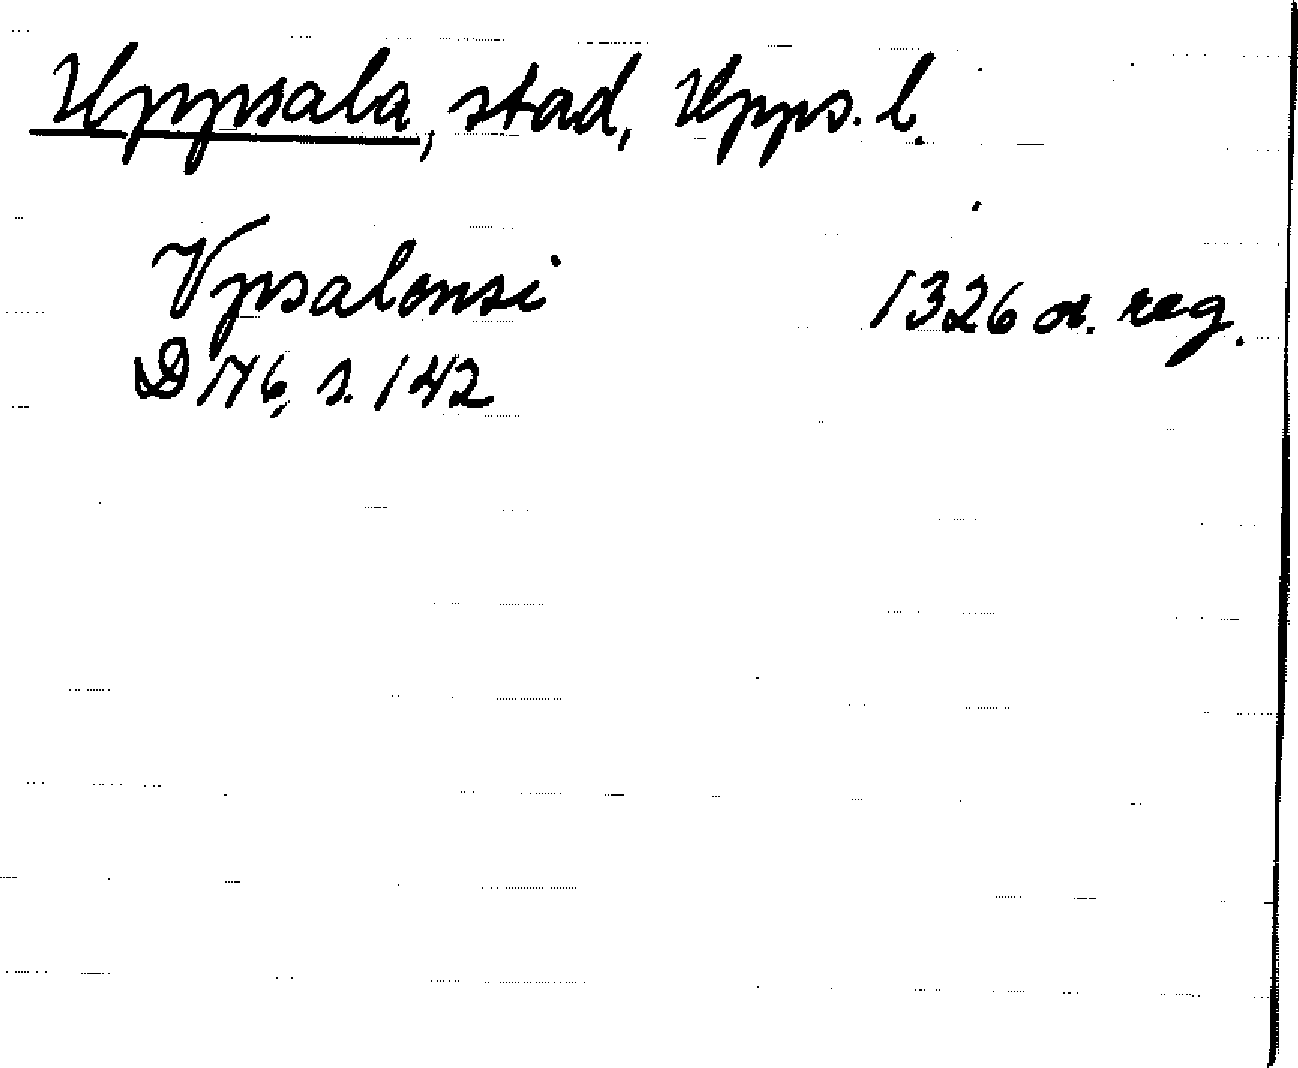 Uppsala, stad, Upps. l.
Vpsalensi 1326 or. reg.
D 176, s. 142